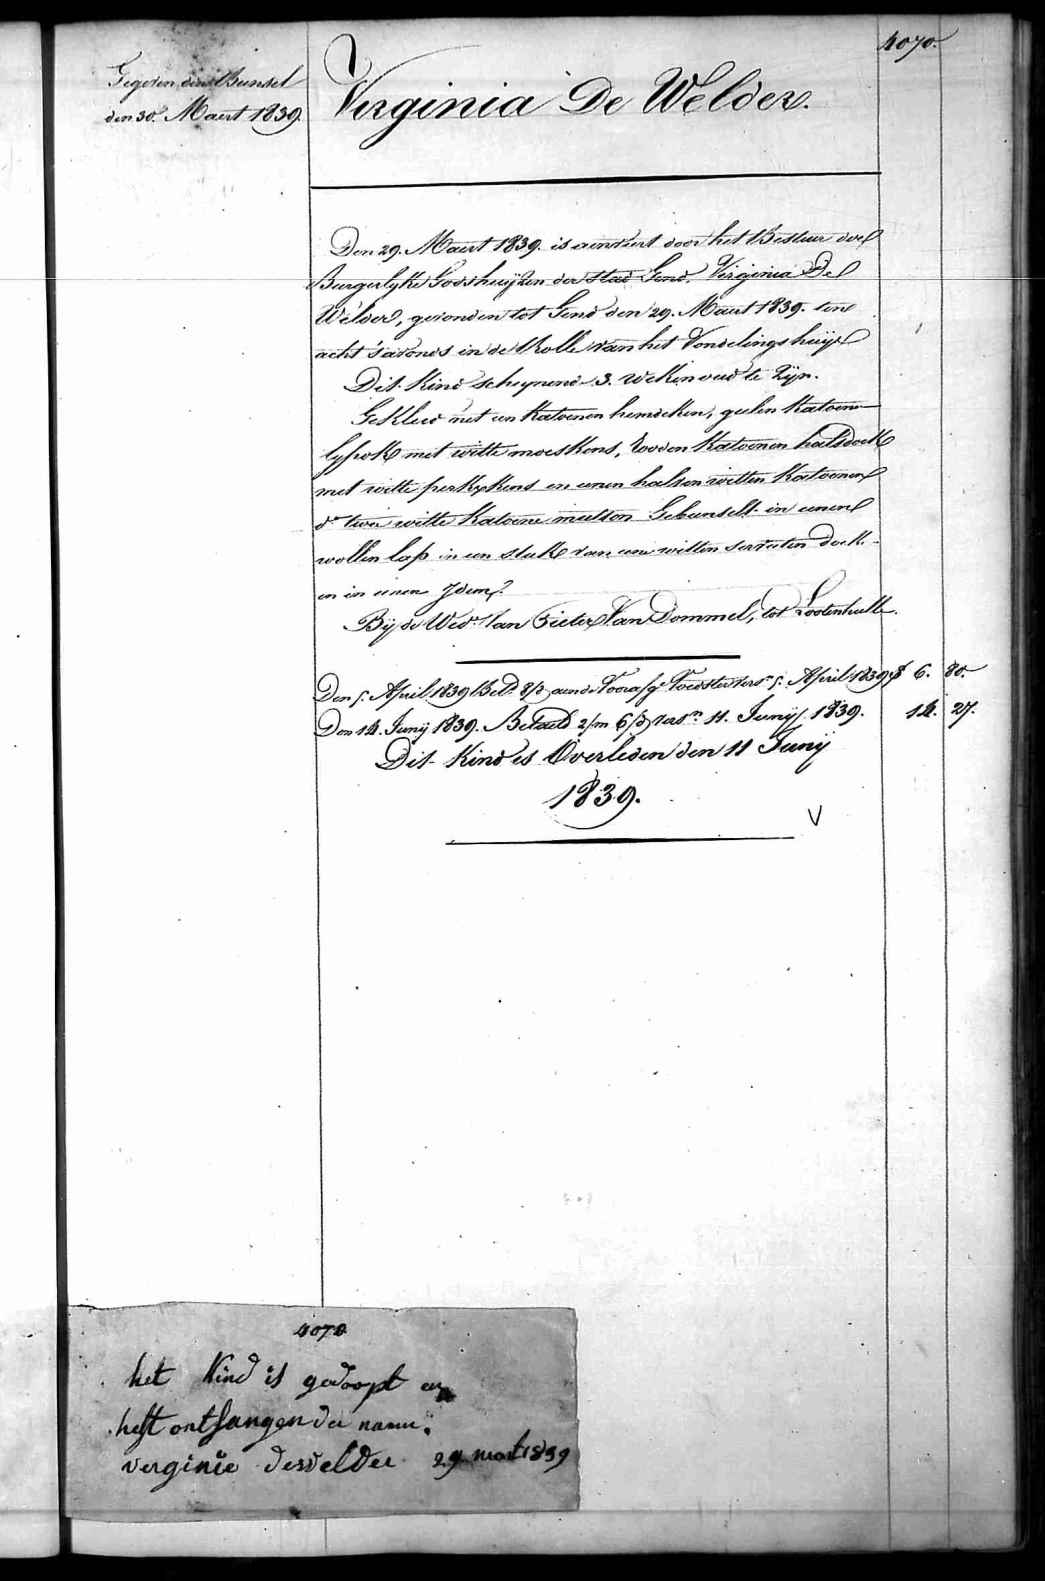 4070.
Gegeven eenen Bunsel
den 30. Maert 1839.
Virginia De Welder.
Den 29. Maert 1839. is aenveert door het Bestuer der
Burgerlyke Godshuyzen der stad Gend. Virginia De
Welder, gevonden tot Gend den 29. Maert 1839. ten
acht s'avonds in de Rolle van het Vondelingshuys
Dit Kind schynende 3. weken oud te zyn.
Gekleed met een Katoenen hemdeken, geelen Katoene
lyfrok met witte moeskens, rooden Katoenen halsdoek
met witte perkskens en eenen halven witten Katoenen
do twee witte Katoene mutsen Gebunselt in eenen
wollen lap in een stuk van eene witten servieten doek
en in eenen Idem.
By de Wede. Van Pieter Van Dommel, tot Lootenhulle.
Den 5. April 1839 Bet. 8/3 aen de Vooraf. Voedster vers. 5. April 1839 f 6. 80.
Den 14. Juny 1839. Betaeld 2/m 6/3 vers.n 11. Juny 1839. 14. 27.
Dit Kind is Overleden den 11 Juny
1839.
V
4070
het Kind is gedoopt en
heft ontfangen den name.
verginie deswelder 29 mart 1839